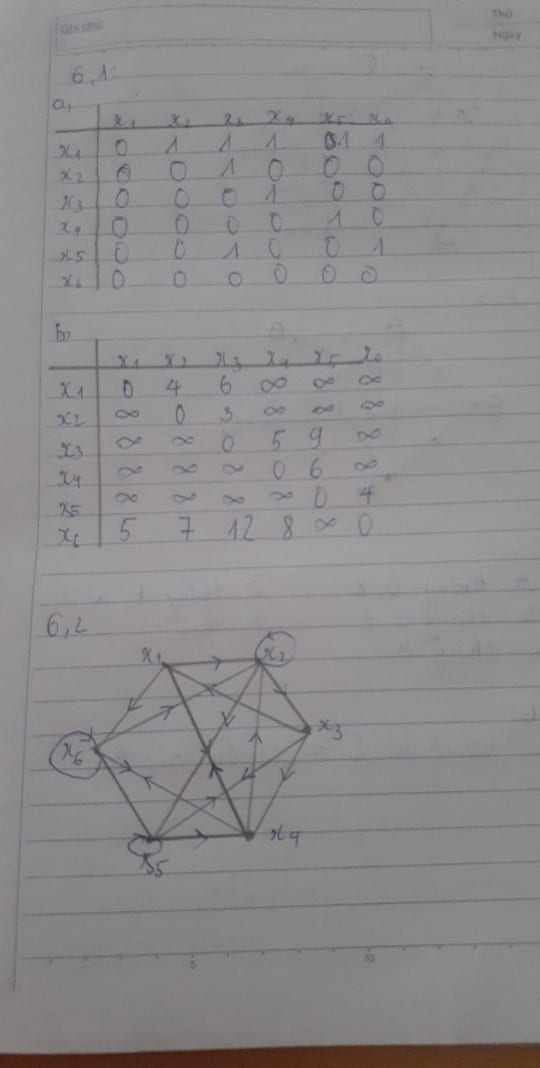 Ghi chú:
Thứ
Ngày
6,1:
a,
x1 x2 x3 x4 x5 x6
x1 0 1 1 1 1 1
x2 0 0 1 0 0 0
x3 0 0 0 1 0 0
x4 0 0 0 0 1 0
x5 0 0 1 0 0 1
x6 0 0 0 0 0 0
b,
x1 x2 x3 x4 x5 x6
x1 0 4 6 ∞ ∞ ∞
x2 ∞ 0 3 ∞ ∞ ∞
x3 ∞ ∞ 0 5 9 ∞
x4 ∞ ∞ ∞ 0 6 ∞
x5 ∞ ∞ ∞ ∞ 0 4
x6 5 7 12 8 ∞ 0
6,2
x1 x2
x3
x6
x5 x4
5 10